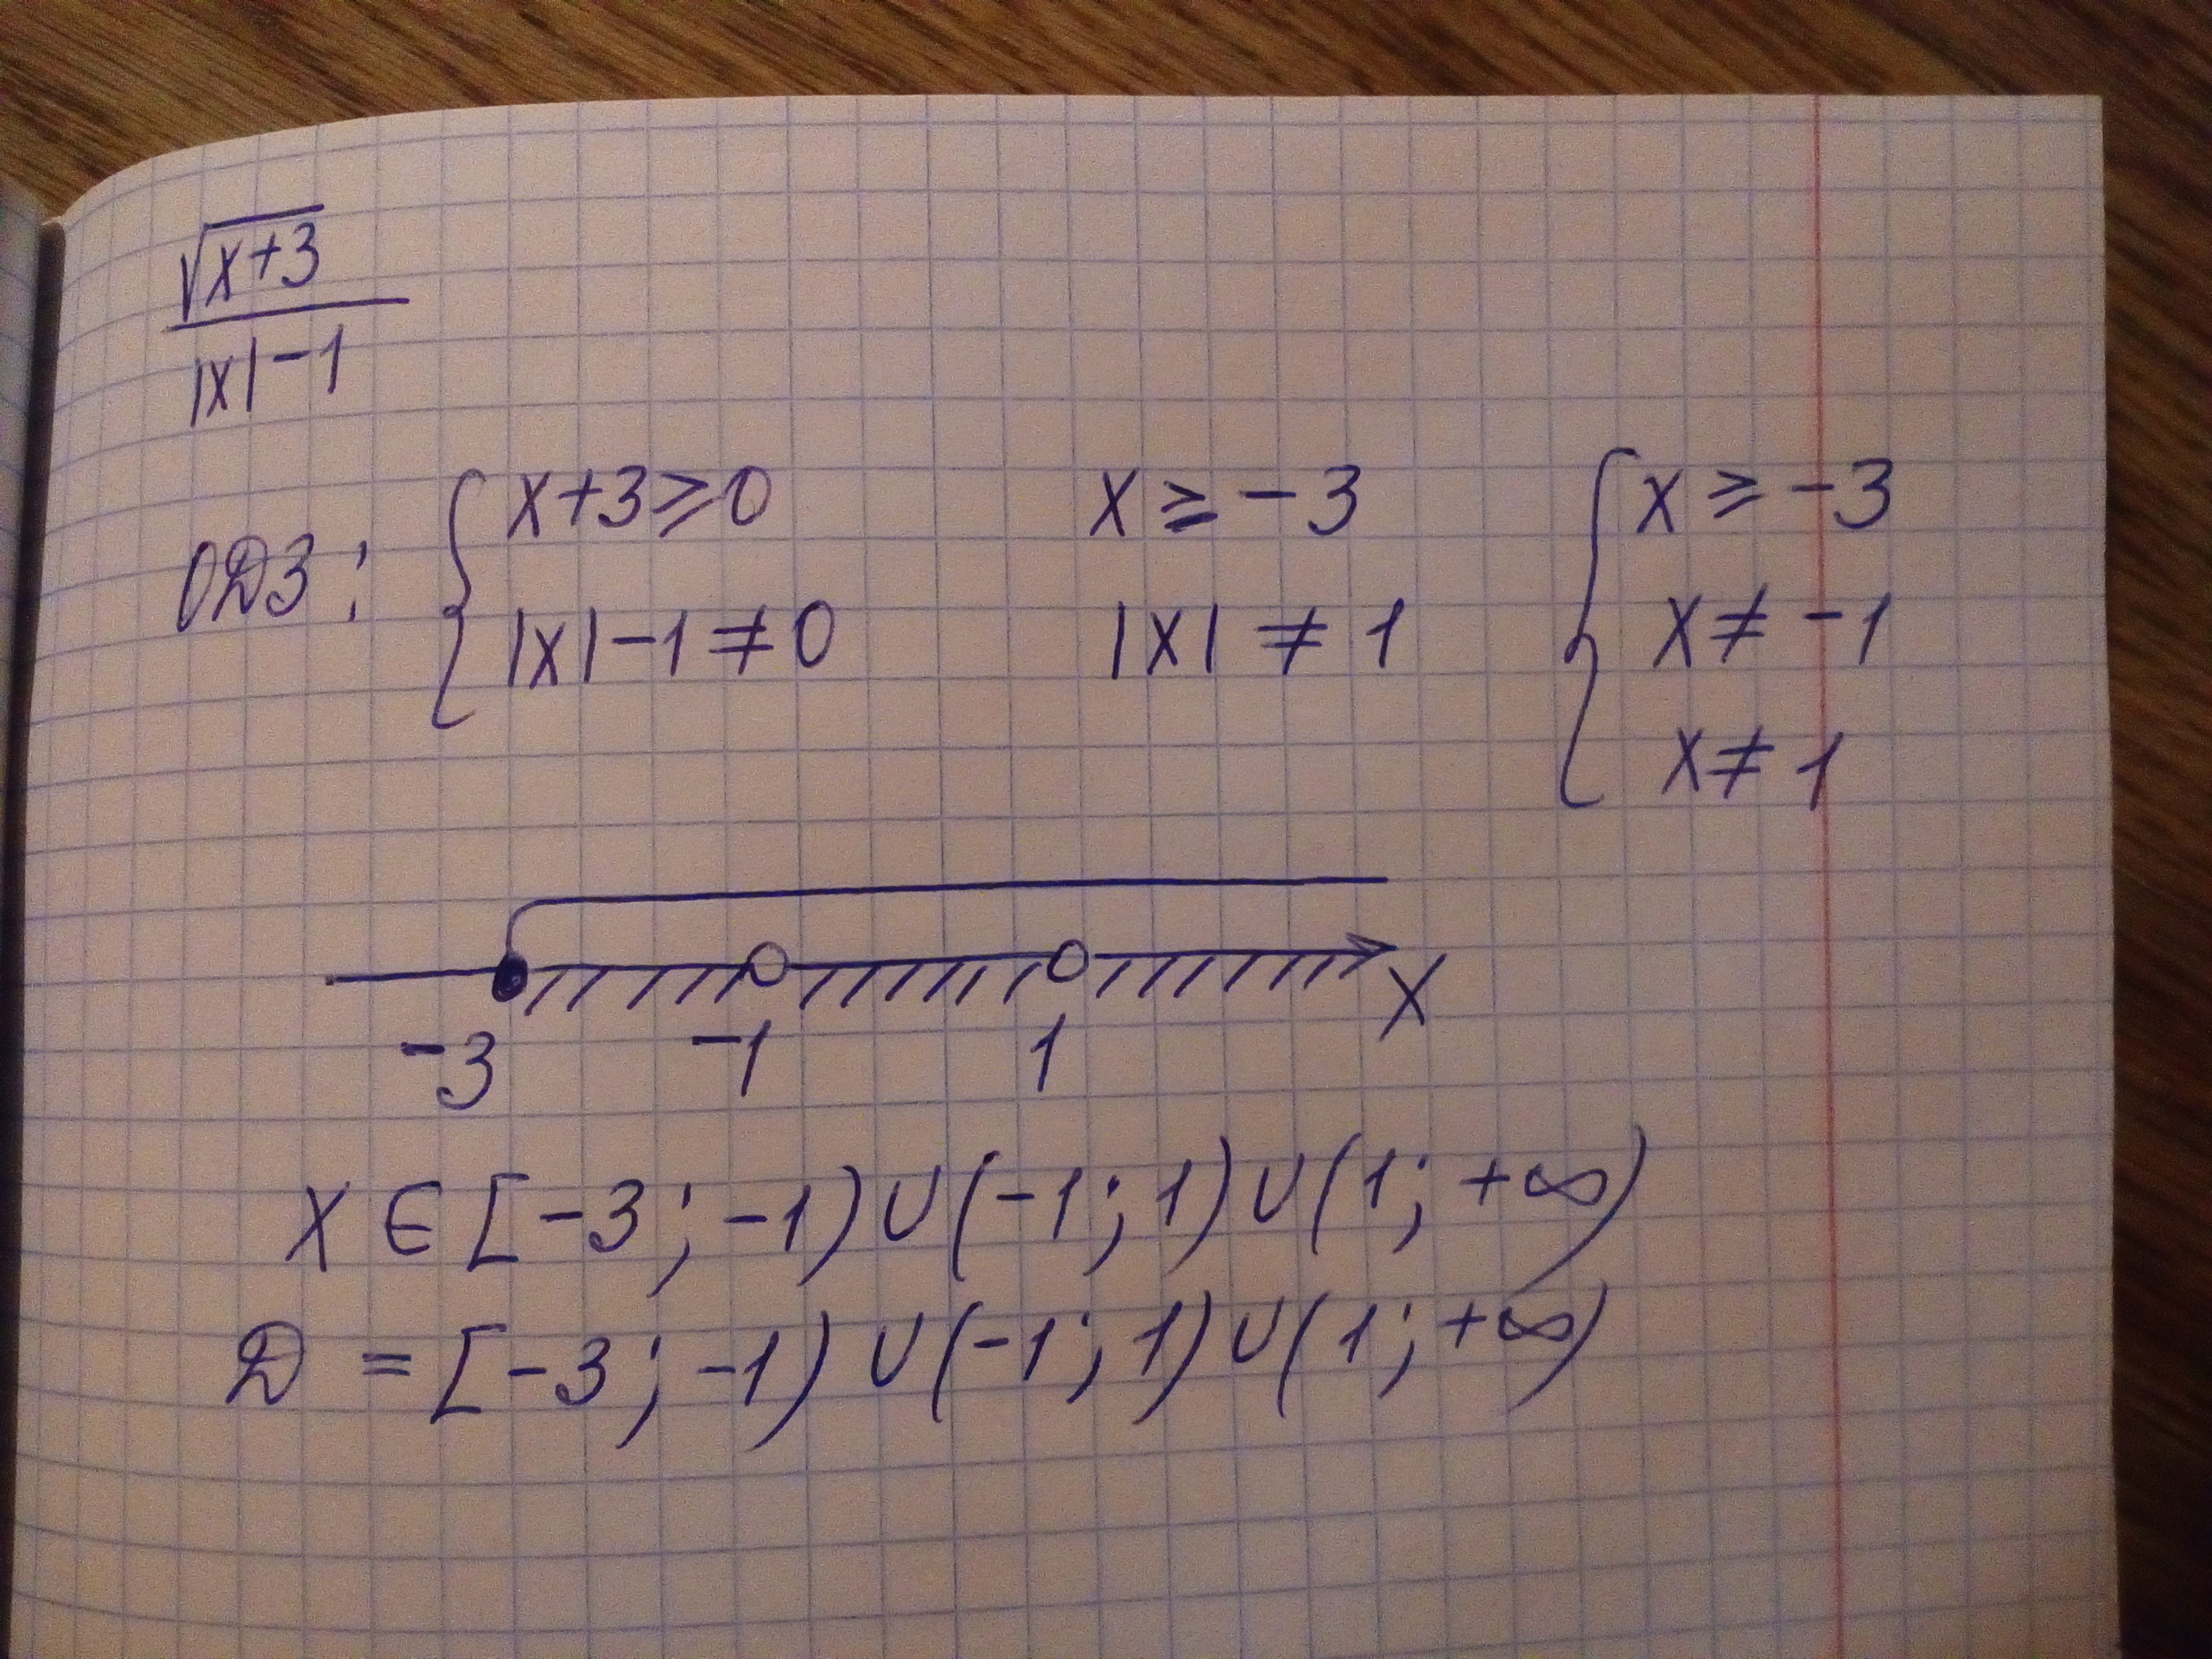 √x+3
|x|-1
ОДЗ: { x+3⩾0 x ⩾ -3 { x ⩾ -3
|x|-1≠0 |x| ≠ 1 x ≠ -1
x ≠ 1
-3 -1 1 x
x ∈ [-3; -1) ∪ (-1; 1) ∪ (1; +∞)
D = [-3; -1) ∪ (-1; 1) ∪ (1; +∞)